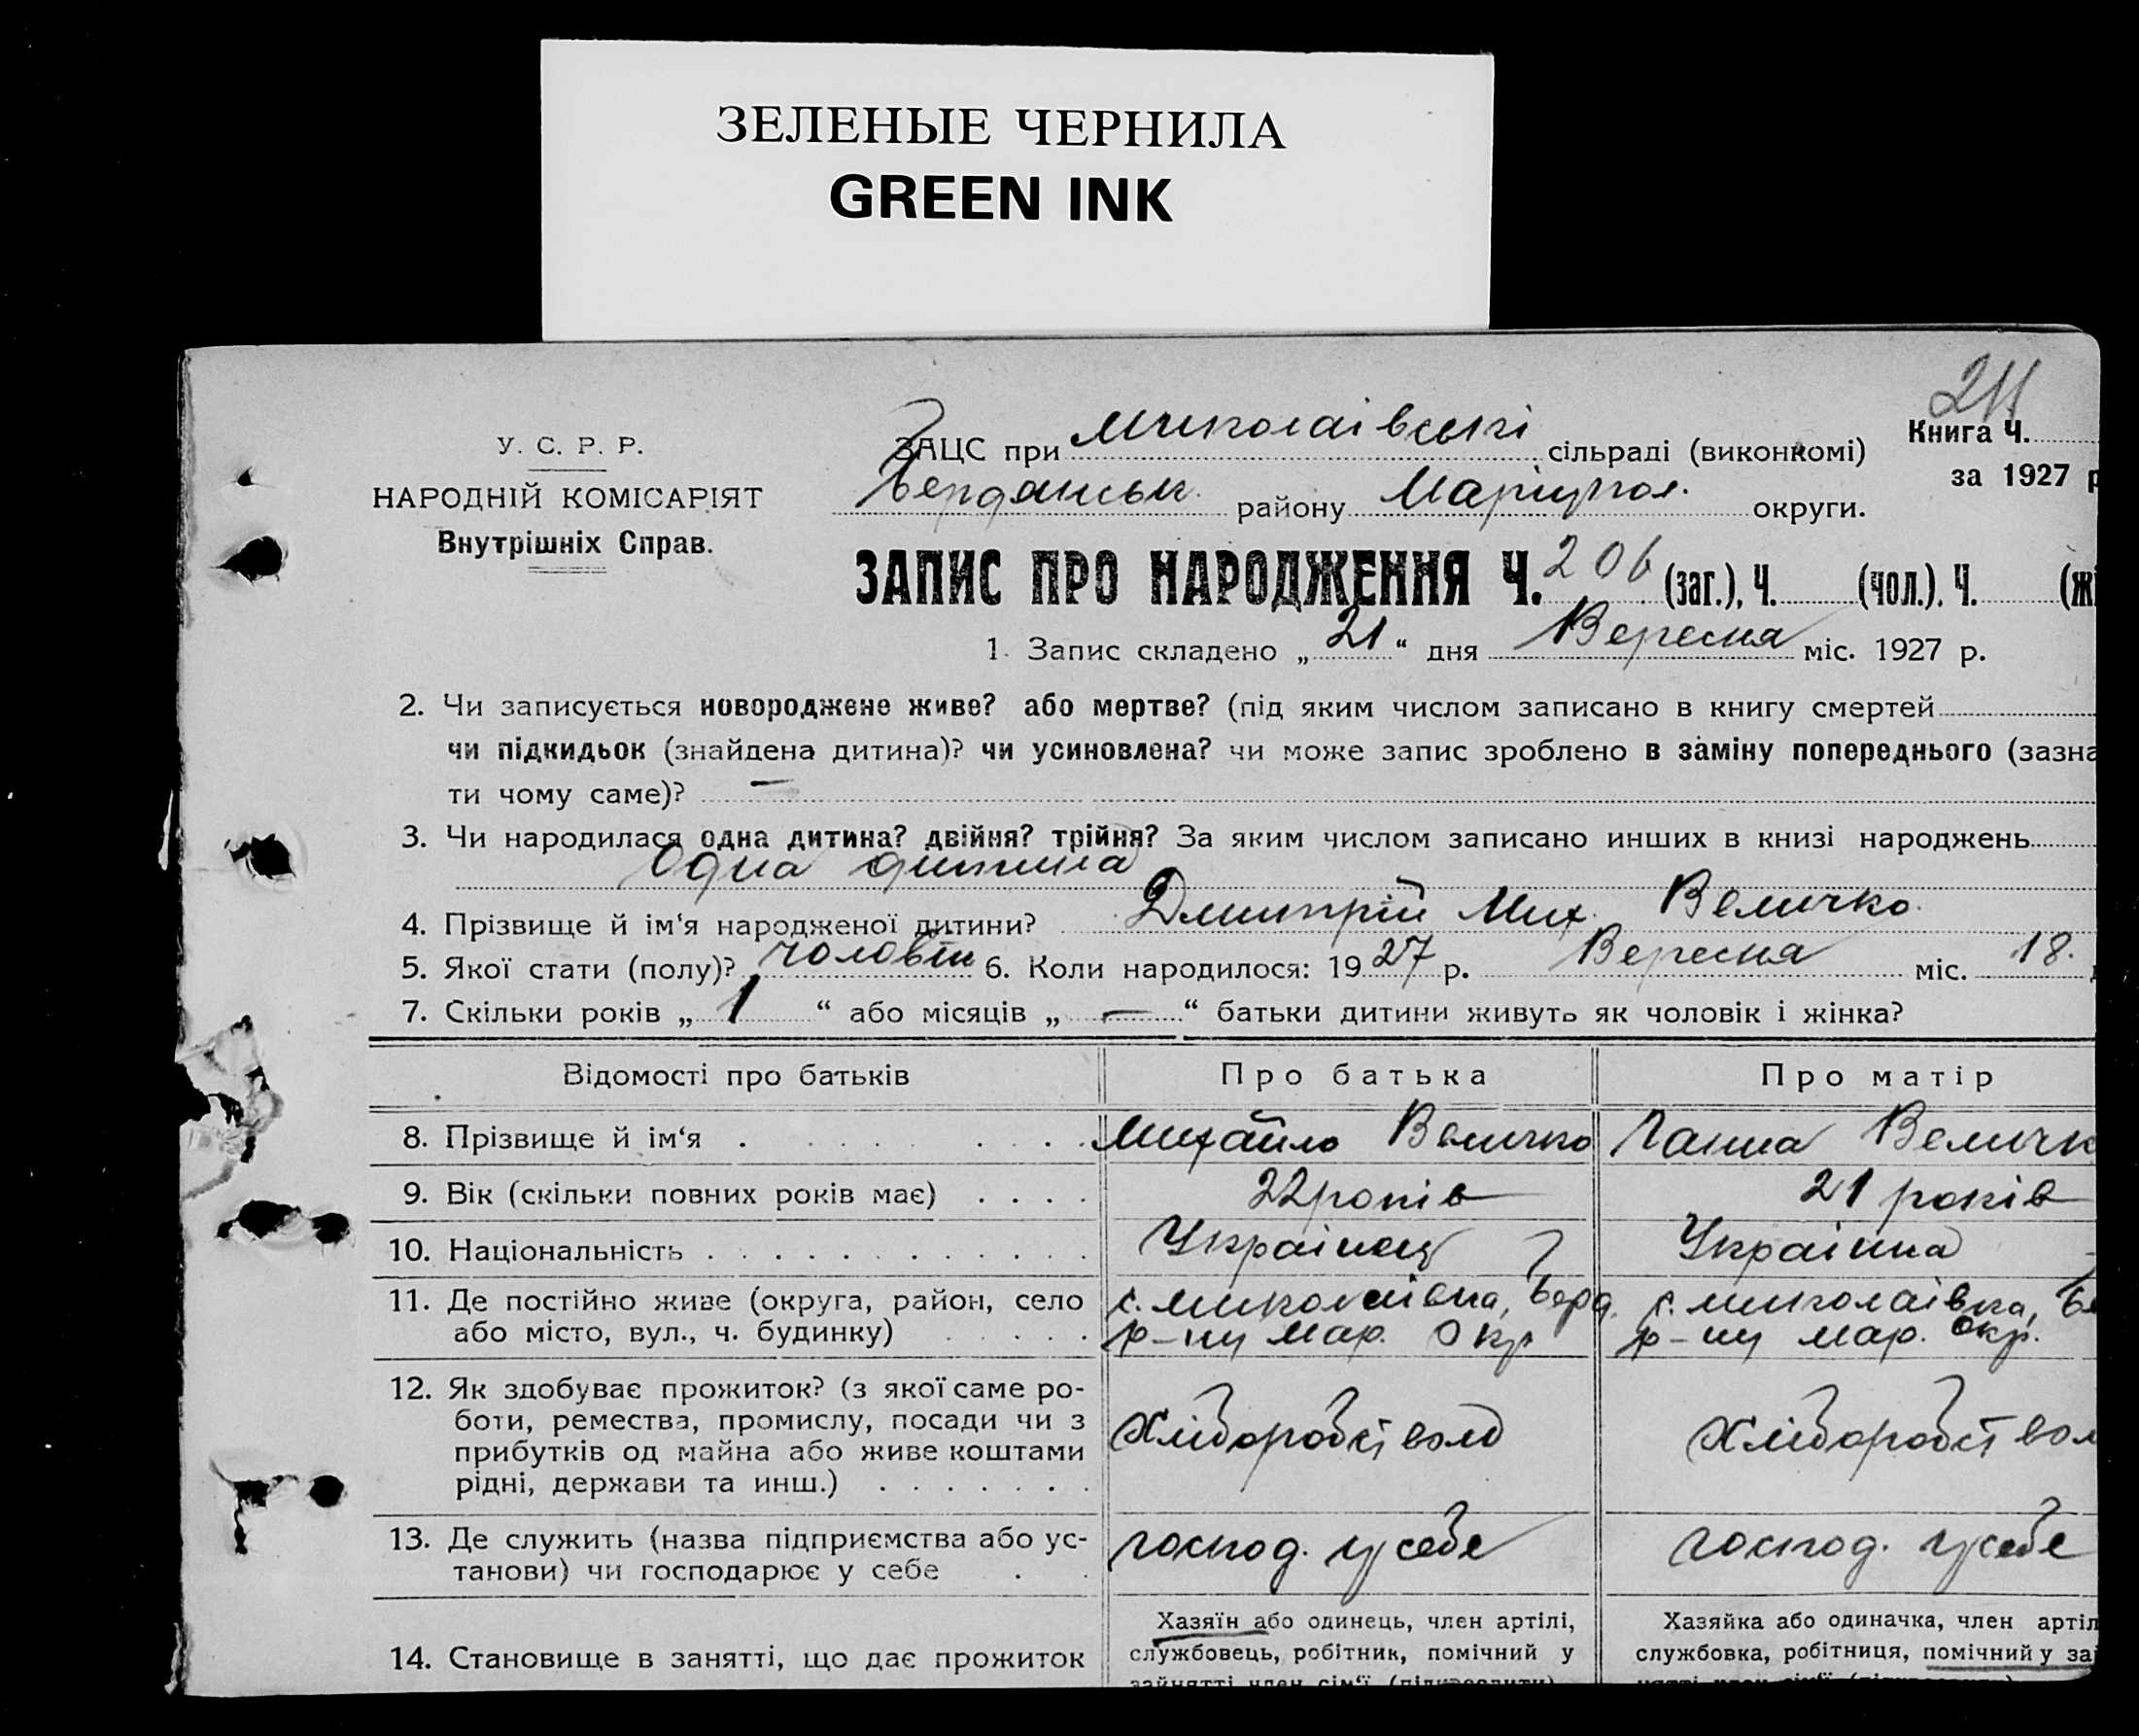 ЗЕЛЕНЫЕ ЧЕРНИЛА
GREEN INK
211
У. С. Р. Р.
НАРОДНІЙ КОМІСАРІЯТ
Внутрішніх Справ.
ЗАЦС при Миколаівські сільраді (виконкомі)
Бердянськ. району Маріупол. округи.
Книга Ч.
за 1927 р
ЗАПИС ПРО НАРОДЖЕННЯ Ч. 206 (заг.), Ч. (чол.), Ч. (жі
1. Запис складено „ 21 “ дня Вересня міс. 1927 р.
2. Чи записується новороджене живе? або мертве? (під яким числом записано в книгу смертей
чи підкидьок (знайдена дитина)? чи усиновлена? чи може запис зроблено в заміну попереднього (зазна
ти чому саме)? —
3. Чи народилася одна дитина? двійня? трійня? За яким числом записано инших в книзі народжень
Одна дитина
4. Прізвище й ім‘я народженої дитини? Дмитрій Мих. Величко.
5. Якої стати (полу)? чоловічи 6. Коли народилося: 1927 р. Вересня міс. 18.
7. Скільки років „ 1 “ або місяців „ — “ батьки дитини живуть як чоловік і жінка?
Відомості про батьків Про батька Про матір
8. Прізвище й ім‘я Михайло Величко Ганна Величк
9. Вік (скільки повних років має) 22 років 21 років
10. Національність Украінец Украінка
11. Де постійно живе (округа, район, село с. Миколаівка, Берд. с. Миколаівка, Бе
або місто, вул., ч. будинку) р-ну Мар. Окр р-ну Мар. Окр.
12. Як здобуває прожиток? (з якої саме ро-
боти, ремества, промислу, посади чи з Хліборобством Хліборобством
прибутків од майна або живе коштами
рідні, держави та инш.)
13. Де служить (назва підприємства або ус- господ. у себе господ. у себе
танови) чи господарює у себе
Хазяїн або одинець, член артілі, Хазяйка або одиначка, член артіл
14. Становище в занятті, що дає прожиток службовець, робітник, помічний у службовка, робітниця, помічний у за
зайнятті член сім‘ї (підкреслити)